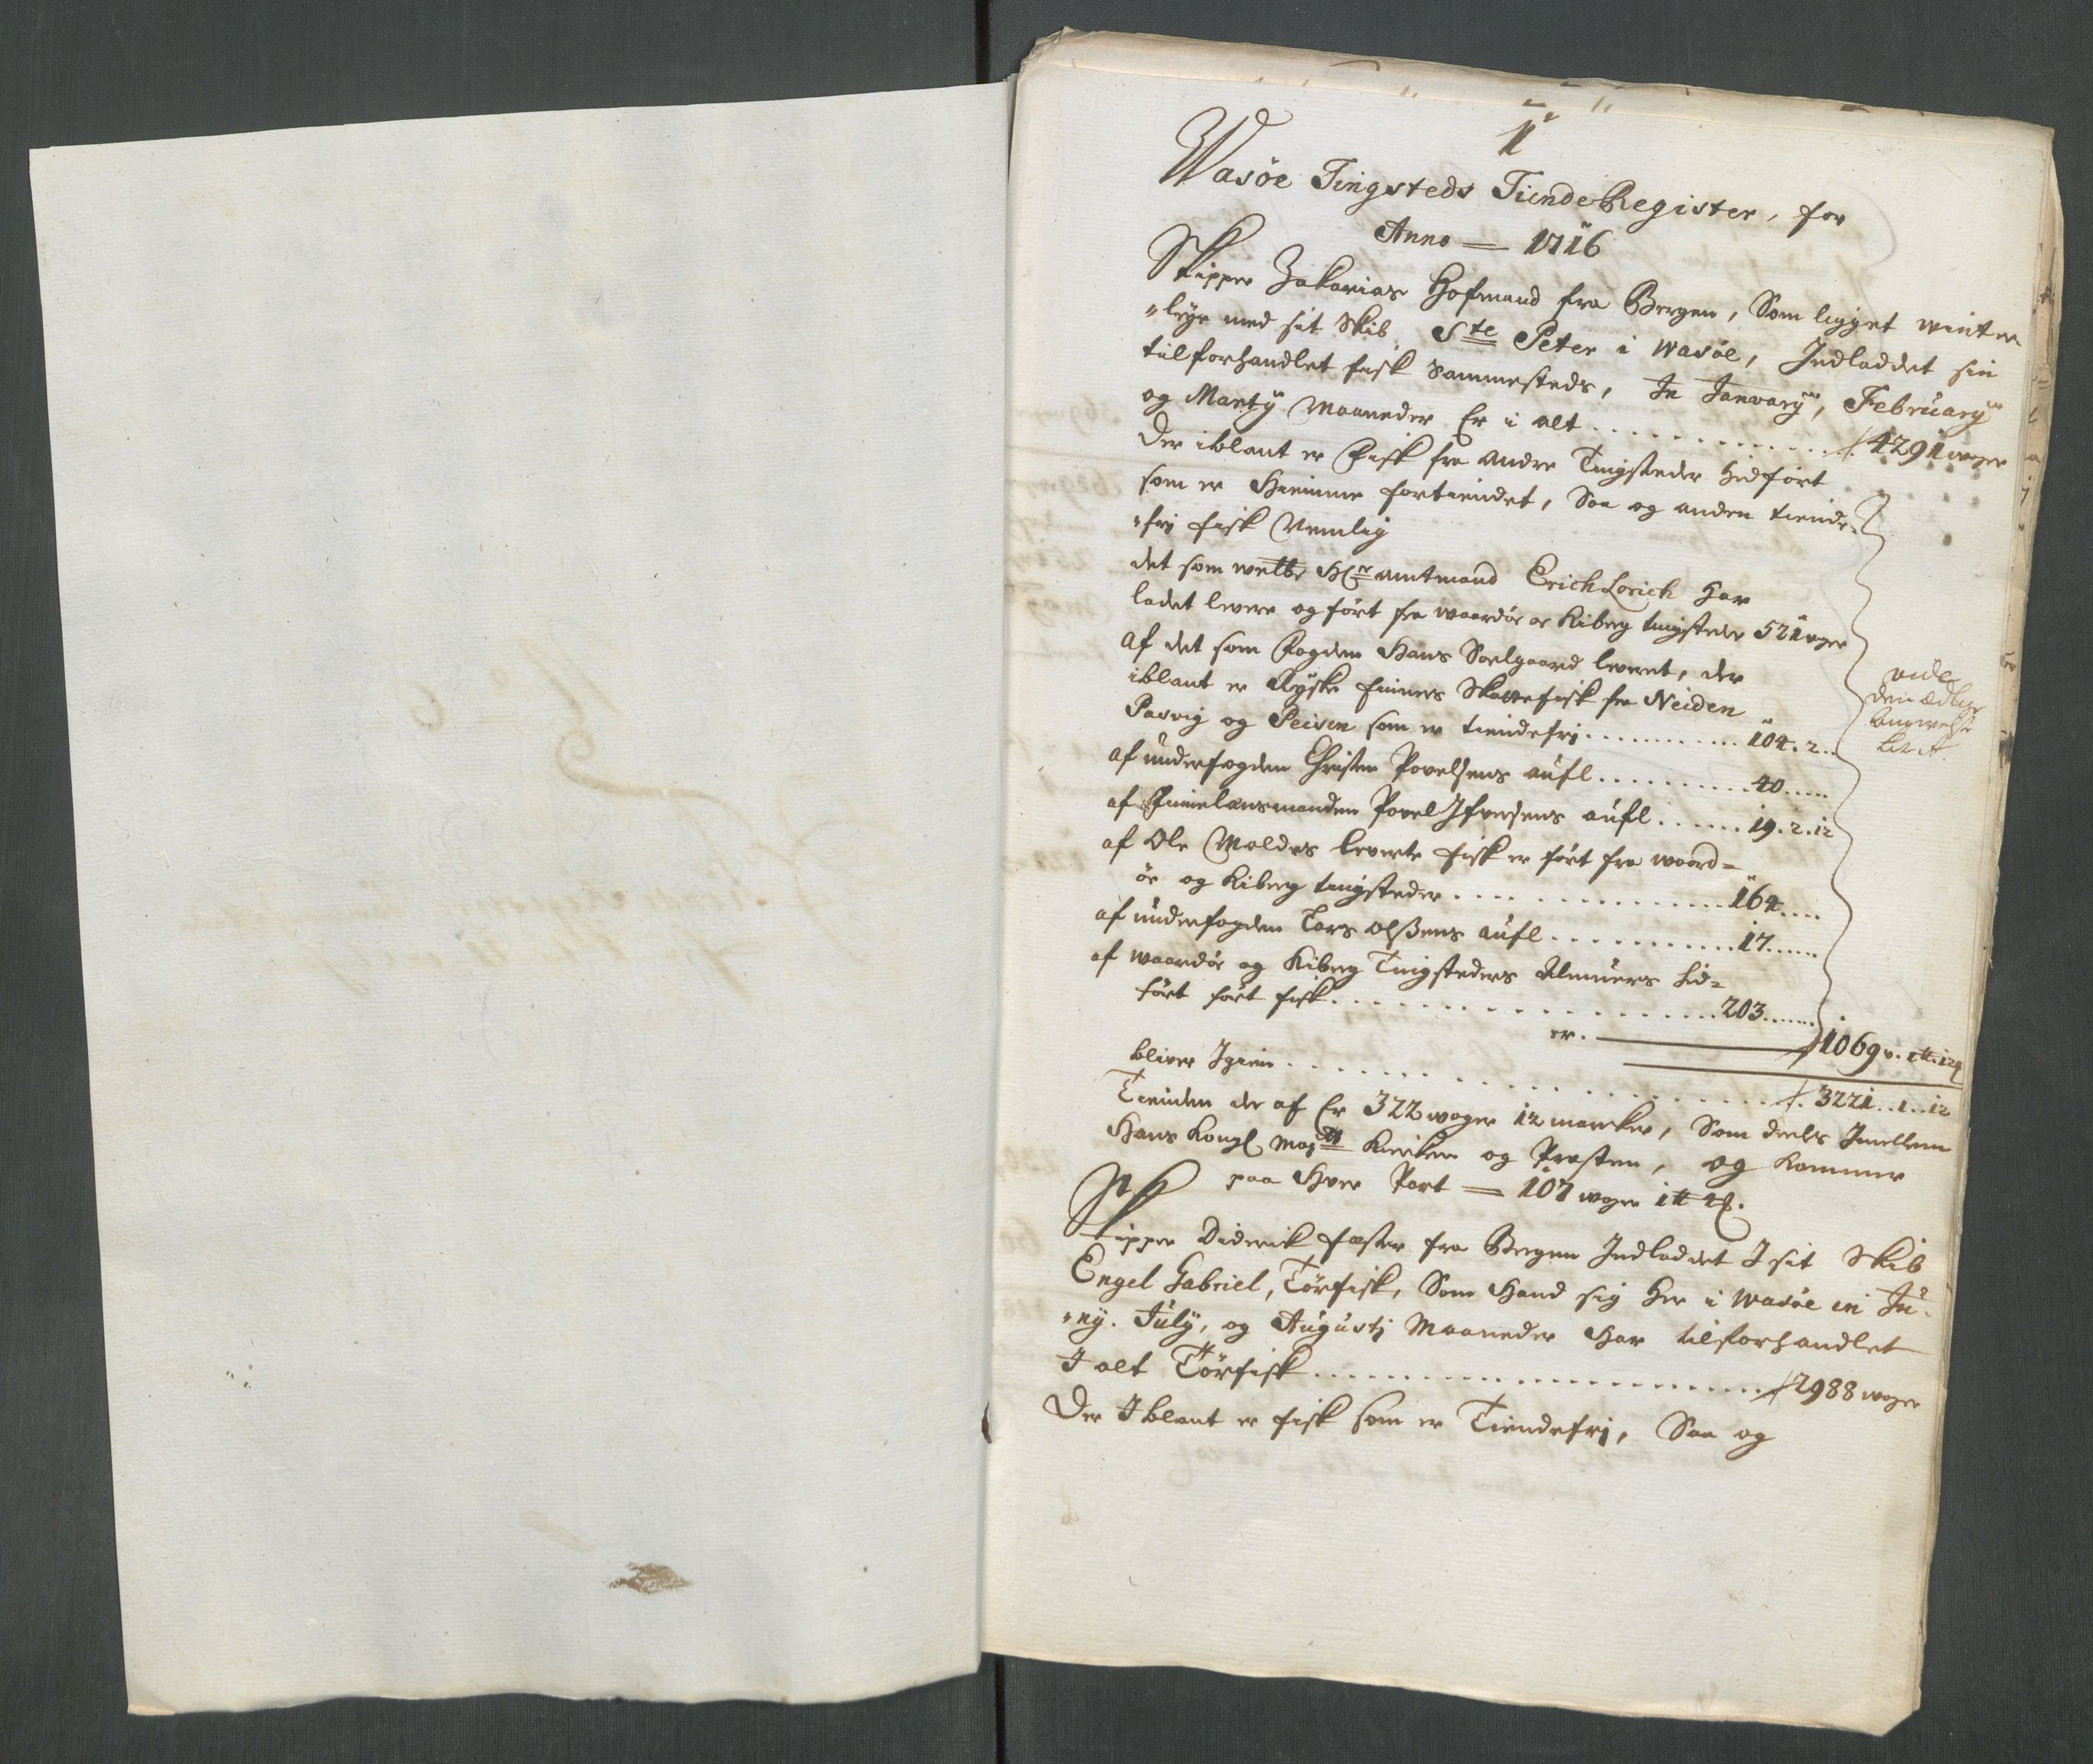 1
Wasöe Tingsteds Tiende Register, for
Anno 1716
Skipper Zakarias Hofmand fra Bergen, Som ligget winter
"leye med sit Skib Ste Peter i Wasöe, Indladdet sin
tilforhandlet fisk sammesteds, In January, February
og Marty Maaneder Er i alt . . . . . 4291 woger
der iblant er Fisk fra andre Tingsteder hidfört
som er Hiemme fortiendet, Saa og anden tiende-
"frj fisk Nemlig
det som welbr Hr amtmand Erich Lorich har
ladet levere og fört fra waardöe oc Kiberg tingsteder 521 woger
Af det som Fogden Hans Soelgaard leveret, der
iblant er Ryske finners Skattefisk fra Neiden
Pasvig og Peisen som er tiendefrj . . . . . 104. 2 ..
af underfogden Christen Povelsens aufl . . . . . 40 ....
af Finnelænsmanden Povel Ifversens aufl . . . . . 19. 2. 12
af Ole Moldes leverte fisk er fört fra waard=
öe og Kiberg tingsteder . . . . . 164 ....
af underfogden Lars Olssens aufl . . . . . 17 .....
af waardöe og Kiberg Tingsteders Almuers hid=
fört fört fisk . . . . . 203 ......
vide
den ædlige
Lit A
er. 1069 v. 1 . 12
bliver Igien . . . . . 3221 .. 1 .. 12
Tienden der af Er 322 woger 12 marcker, Som deeles Imellem
Hans Kongl Maytt Kircken og Præsten, og kommer
paa Hver Part = 107 woger 1 4 .
Skipper Diderik Faster fra Bergen Indladdet I sit Skib
Engel Gabriel, Törfisk, Som Hand sig Her i Wasöe in Ju-
"ny. July, og Augustj Maaneder Har tilforhandlet
I alt Törfisk . . . . . 2988 woger
Der Iblant er fisk som er Tiendefrj, Saa og